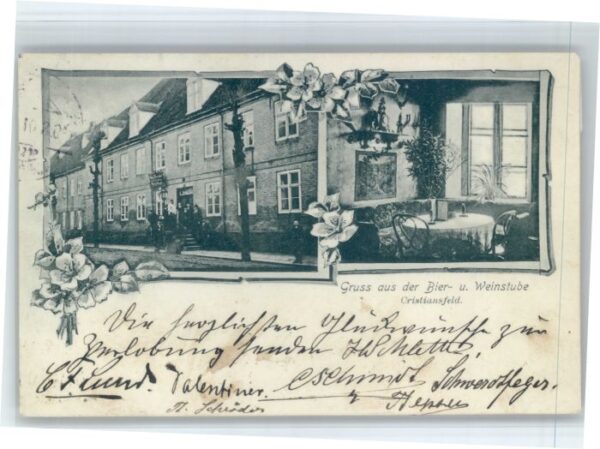 Gruss aus der Bier- u. Weinstube
Cristiansfeld.
Die herzlichsten Glückwünsche zur
Verlobung senden
C. F. Lund. Valentiner. C Schmidt Schwerdtfeger.
H. Schröder